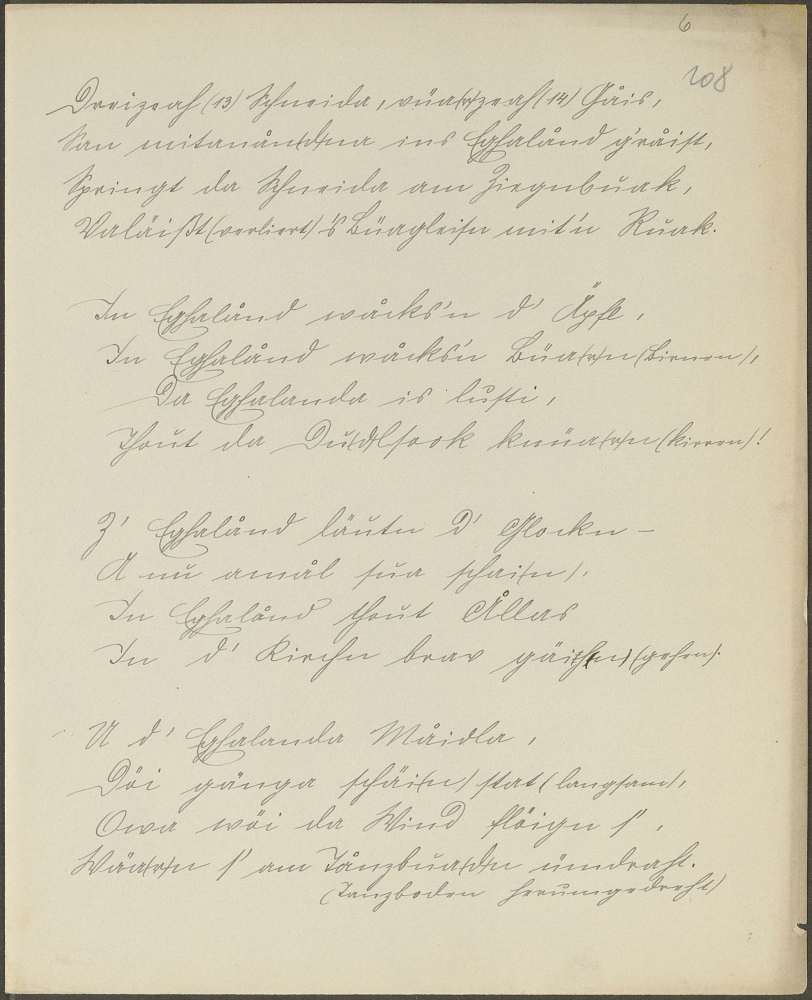 6
108
Dreizeah (13) Schneida, vüa(r)zeah (14) Gåis,
San mitanån(d)na ins Eghalånd g'råist,
Springt da Schneida am Ziegnbuak,
Valäißt (verliert) 's Büagleis'n mit'n Ruak.
In Eghalånd wåcks'n d' Äpfl,
In Eghalånd wåcks'n Büa(r)n (Birnen),
Da Eghalanda is lusti,
Thout da Du(d)lsook knüa(r)n (kirren)!
Z' Eghalånd läutn d' Glockn –
A nu amål sua schai(n),
In Eghalånd thout Ållas
In d' Kirchn brav gäih(n) (gehen).
U d' Eghalanda Måidla,
Döi gänga schäi(n) stat (langsam),
Owa wöi da Wind flöign s',
Wäa(r)n s' am Tånzbua(d)n ümdraht.
(Tanzboden herumgedreht)